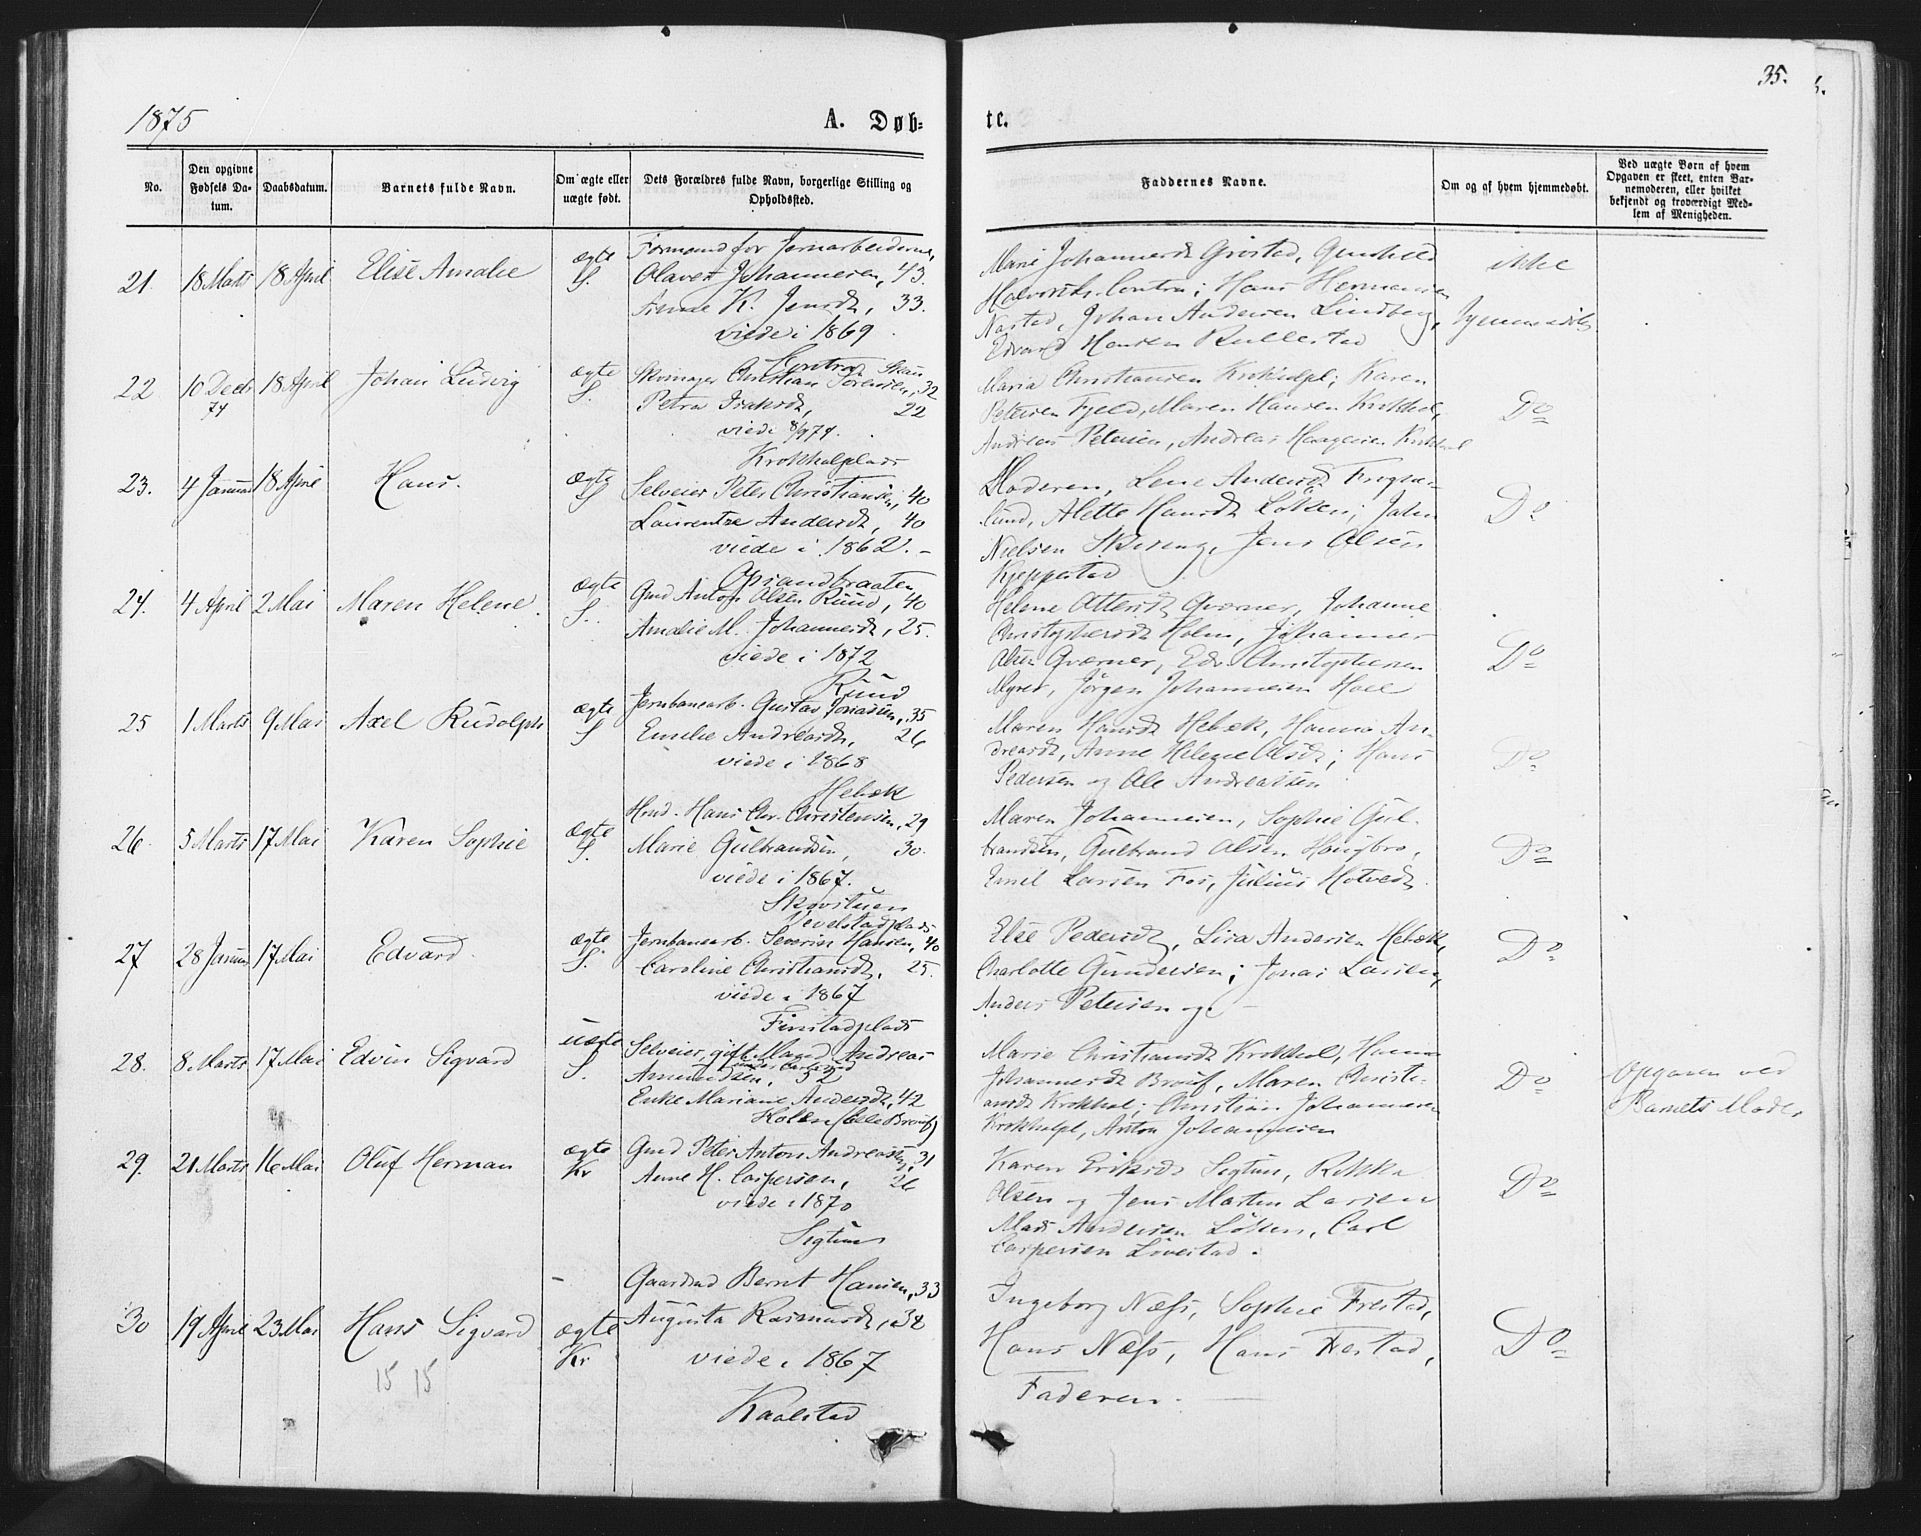 1875
A. Døb=
te.
35.
No.
Den opgivne Fødsels Da-tum.
Daabsdatum.
Barnets fulde Navn.
Om ægte eller uægte født.
Dets Forældres fulde Navn, borgerlige Stilling og Opholdssted.
Faddernes Navne.
Om og af hvem hjemmedøbt.
Ved uægte Børn af hvem Opgaven er skeet, enten Bar-nemoderen, eller hvilket bekjendt og troværdigt Med-lem af Menigheden.
21. 18 Marts 18 April Elise Amalie ægte S.
Formand for Jernarbeiderne,
Olaves Johannesen, 43.
Anne K. Jensdt, 33.
viede i 1869
Contra, Skau
Marie Johannesdt Grøstad, Gunhild
Halvorsdt Contra; Hans Hermansen
Nøstad, Johan Andersen Lindberg,
Edvard Hansen Rullestad
ikke
hjemmedøbt
22 10 Decbr 74 18 April Johan Ludvig ægte S.
Skrinager Christian Sørensen, 32
Petra Isaksdt, 22
viede 8/9 74.
Krokholplads
Maria Christiansen Krokholpl; Karen
Petersen Fjeld, Maren Hansen Krokhol,
Andreas Petersen, Andreas Haagensen Krokhol
Do
23. 4 Januar 18 April Hans. ægte S
Selveier Peter Christiansen, 40
Laurentze Andersdt, 40
viede i 1862. –
Opsandbraaten
Moderen, Lene Andersdt Frogne-
lund, Alette Hansdt Løken; John
Nielsen Skusseng, Jens Olsen
Kjeppestad
Do
24. 4 April 2 Mai Maren Helene. ægte S.
Gmd Anton Olsen Ruud, 40
Amalie M. Johannesdt, 25.
viede i 1872
Ruud
Helene Ottersdt Qværner, Johanne
Christophersdt Holm, Johannes
Olsen Qværner, Edv. Christophersen
Myrer, Jørgen Johannesen Hoel
Do
25 1 Marts 9 Mai Axel Rudolph ægte S
Jernbanearb. Gustav Jonassen, 35
Emelie Andreasdt, 26
viede i 1868
Hebæk
Maren Hansdt Hebæk, Hanna An-
dreasdt, Anne Helene Olsdt; Hans
Pedersen og Ole Andreassen
Do
26. 5 Marts 17 Mai Karen Sophie ægte S.
Hmd. Hans Chr. Christensen, 29
Marie Gulbrandsen, 30.
viede i 1867.
Skovstuen
Maren Johannesen, Sophie Gul-
brandsen, Gulbrand Olsen Haugbro,
Emil Larsen Fos, Julius Hotvedt
Do
27 28 Januar 17 Mai Edvard ægte S.
Vevelstadplads
Jernbanearb. Severin Hansen, 40
Caroline Christiansdt, 25.
viede i 1867
Finstadplads
Else Pedersdt, Lisa Andersen Hebæk,
Charlotte Gundersen; Jonas Larsen,
Anders Petersen og –
Do
28. 8 Marts 17 Mai Edvin Sigvard uægte S.
Selveier, gift Mand Andreas
Amundsen, 52
Enke Mariane Andersdt, 42
Holen (elle Braaf)
Marie Christiansdt Krokhol, Hanna
Johannesdt Brauf, Maren Christi-
ansdt Krokhol; Christian Johannesen
Krokholpl, Anton Johannesen
Do
Opgaven ved
Barnets Moder
29. 21 Marts 16 Mai Oluf Herman ægte Kr
Gmd Peter Anton Andreasen, 31
Anne H. Caspersen, 26
viede i 1870
Sigtun
Karen Eriksdt Sigtun, Rikka
Olsen og Jens Martin Larsen
Mads Andersen Løken, Carl
Caspersen Løvestad.
Do
30 19 April 23 Mai Hans Sigvard ægte Kr
Gaardmd Bernt Hansen, 33
Augusta Rasmusdt, 32
viede i 1867
Kaalstad
Ingeborg Næss, Sophie Frestad,
Hans Næss, Hans Frestad,
Faderen. –
Do
15 15